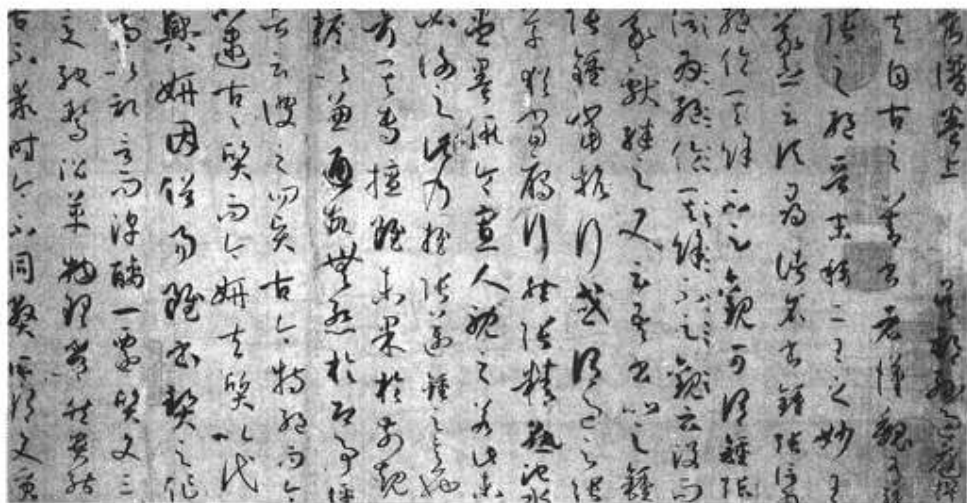 書譜卷上 吳郡孫過庭撰
夫自古之善書者漢魏有
張之絕晉末稱二王之妙王
羲之云頃尋諸名書鍾張信為
絕倫其餘不足觀可謂鍾張
信為絕倫其餘不足觀云沒而
羲獻繼之又云吾書比之鍾
張鍾當抗行或謂過之張
草猶當鴈行然張精熟池水
盡墨假令寡人耽之若此未
必謝之此乃推張邁鍾之意也
考其專擅雖未果於前規
摭以兼通故無慚於即事評
者云彼之四賢古今特絕而今
不逮古古質而今妍夫質以代
興妍因俗易雖書契之作
適以記言而淳醨一遷質文三
變馳騖沿革物理常然貴能
古不乖時今不同弊所謂文質